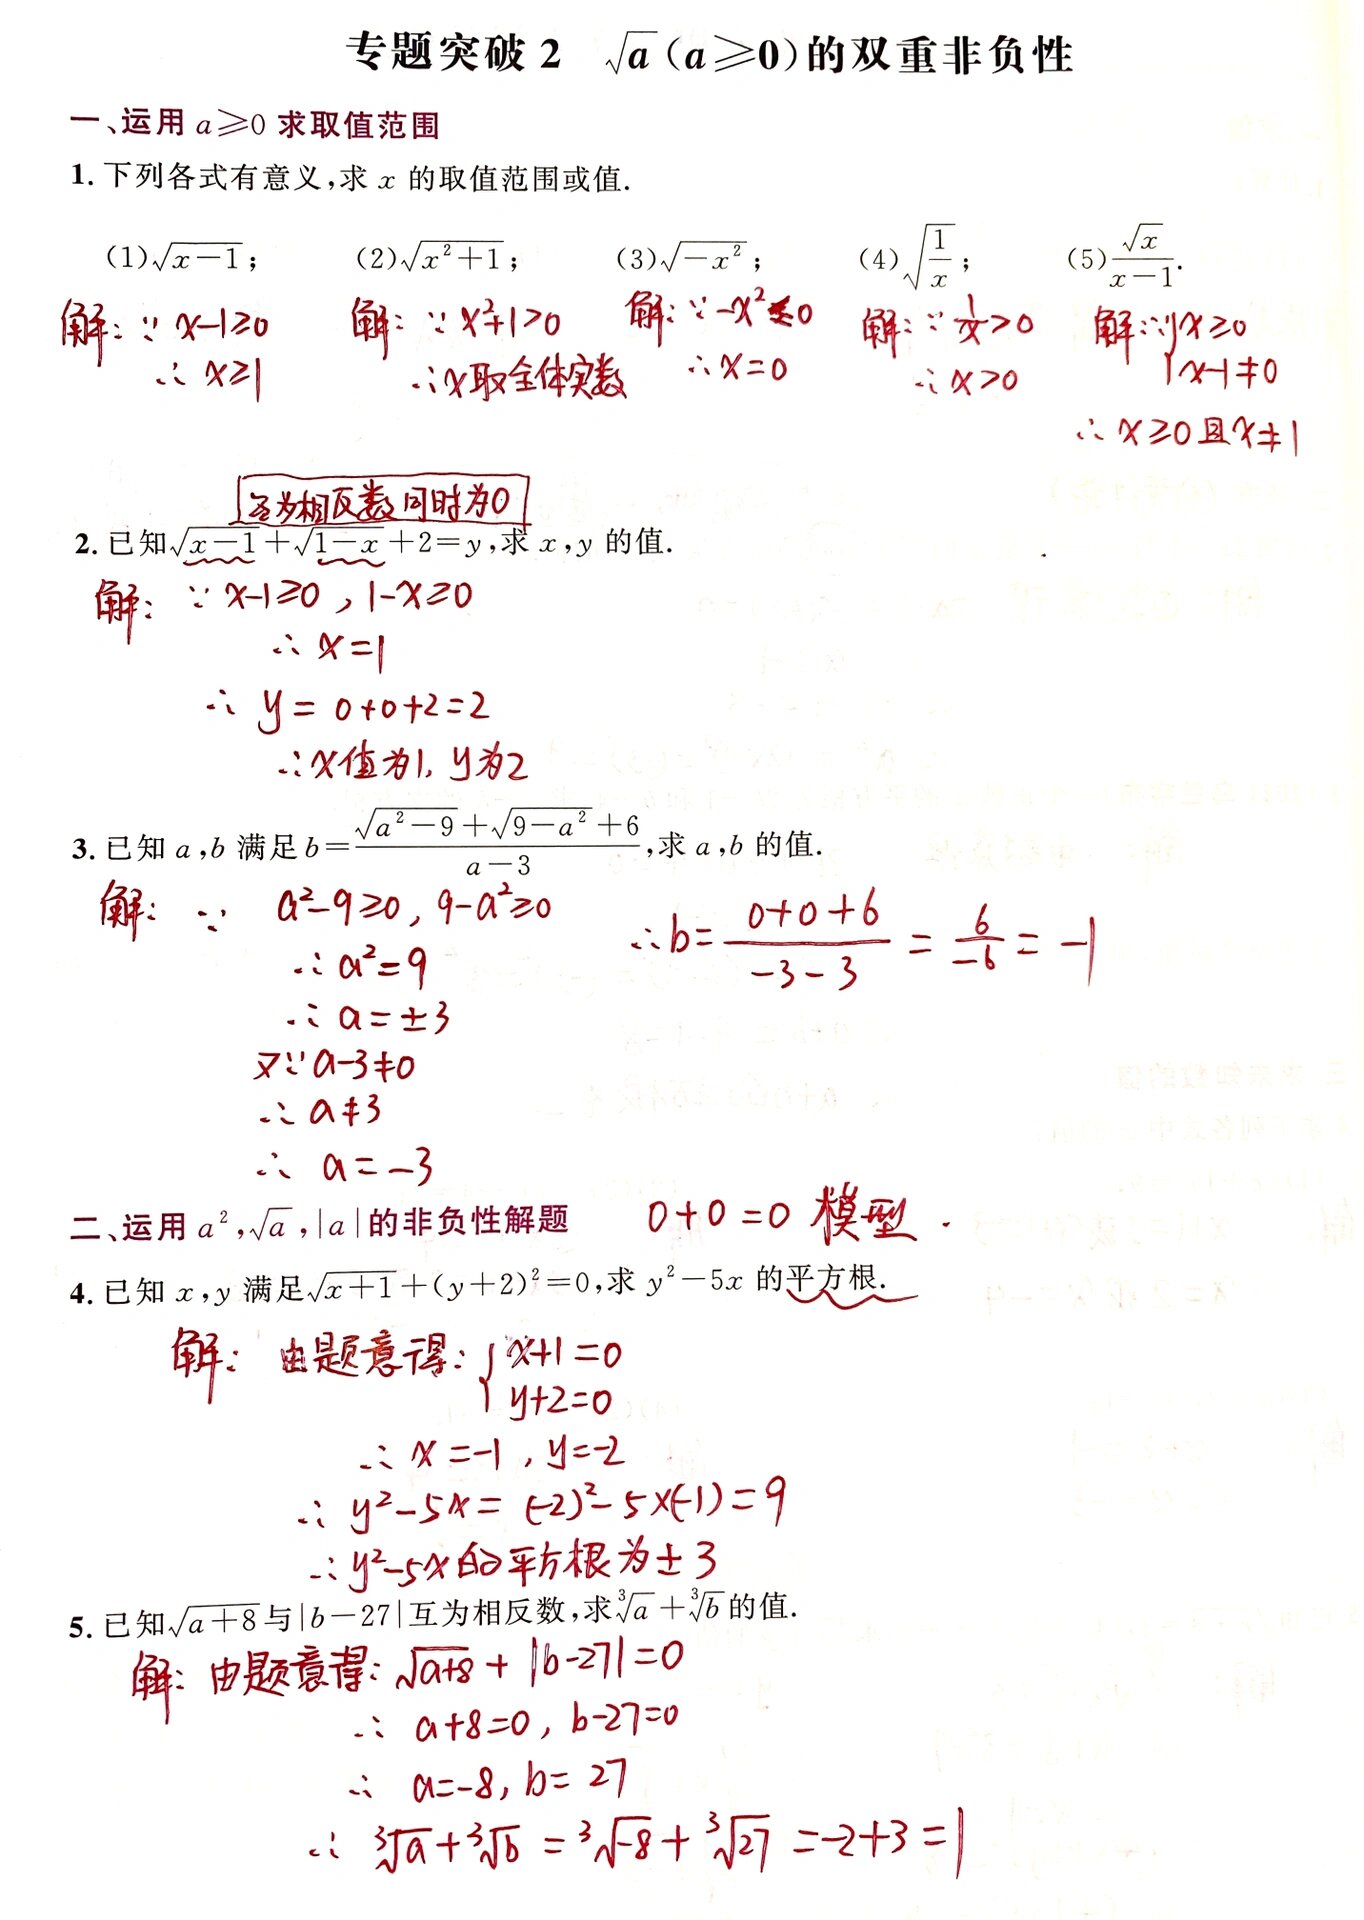 专题突破2 √a(a≥0)的双重非负性
一、运用a≥0求取值范围
1. 下列各式有意义,求x的取值范围或值.
(1)√(x-1); (2)√(x²+1); (3)√(-x²); (4)√(1/x); (5)√x/(x-1).
解:∵x-1≥0 解:∵x²+1>0 解:∵-x²≤0 解:∵1/x>0 解:∵{x≥0
∴x≥1 ∴x取全体实数 ∴x=0 ∴x>0 x-1≠0
∴x≥0且x≠1
互为相反数同时为0
2. 已知√(x-1)+√(1-x)+2=y,求x,y的值.
解:∵x-1≥0,1-x≥0
∴x=1
∴y=0+0+2=2
∴x值为1,y为2
3. 已知a,b满足b=(√(a²-9)+√(9-a²)+6)/(a-3),求a,b的值.
解:∵a²-9≥0,9-a²≥0 ∴b=(0+0+6)/(-3-3)=6/(-6)=-1
∴a²=9
∴a=±3
又∵a-3≠0
∴a≠3
∴a=-3
二、运用a²,√a,|a|的非负性解题 0+0=0模型.
4. 已知x,y满足√(x+1)+(y+2)²=0,求y²-5x的平方根.
解:由题意得:{x+1=0
y+2=0
∴x=-1,y=-2
∴y²-5x=(-2)²-5×(-1)=9
∴y²-5x的平方根为±3
5. 已知√(a+8)与|b-27|互为相反数,求∛a+∛b的值.
解:由题意得:√(a+8)+|b-27|=0
∴a+8=0,b-27=0
∴a=-8,b=27
∴∛a+∛b=∛(-8)+∛27=-2+3=1